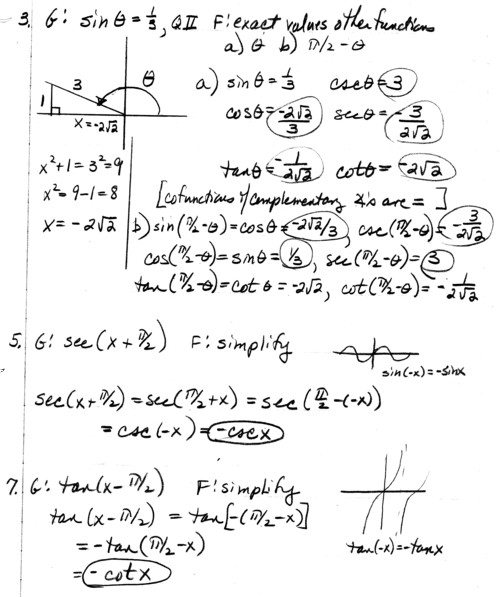 3. G: sin θ = 1/3, Q II F: exact values other functions
a) θ b) π/2 - θ
3 θ
1
x = -2√2
a) sin θ = 1/3 csc θ = 3
cos θ = -2√2/3 sec θ = -3/2√2
tan θ = -1/2√2 cot θ = -2√2
x² + 1 = 3² = 9
x² = 9 - 1 = 8
x = -2√2
[cofunctions of complementary ∠'s are = ]
b) sin(π/2 - θ) = cos θ = -2√2/3, csc(π/2 - θ) = -3/2√2
cos(π/2 - θ) = sin θ = 1/3, sec(π/2 - θ) = 3
tan(π/2 - θ) = cot θ = -2√2, cot(π/2 - θ) = -1/2√2
5. G: sec(x + π/2) F: simplify
sin(-x) = -sin x
sec(x + π/2) = sec(π/2 + x) = sec(π/2 - (-x))
= csc(-x) = -csc x
7. G: tan(x - π/2) F: simplify
tan(x - π/2) = tan[-(π/2 - x)]
= -tan(π/2 - x)
= -cot x
tan(-x) = -tan x